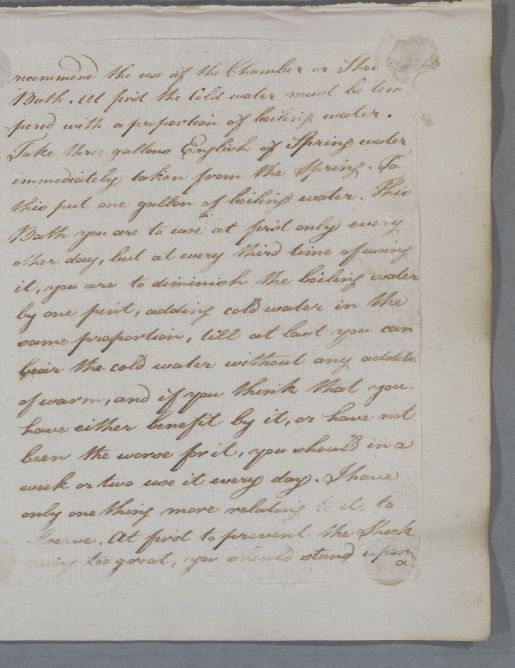 recommend the use of the Chamber or
Bath. At first the Cold water must be tem
pered with a proportion of boiling water.
Take three gallons English of Spring water
immediately taken from the Spring. To
this put one gallon of boiling water. This
Bath you are to use at first only every
other day, but at every third time of using
it, you are to diminish the boiling water
by one pint, adding cold water in the
same proportion, till at last you can
bear the cold water without any additi
of warm, and if you think that you
have either benefit by it, or have not
been the worse for it, you should in a
week or two use it every day. I have
only one thing more relating to it, to
At first to prevent the Shock
being too great, you should stand upon
a